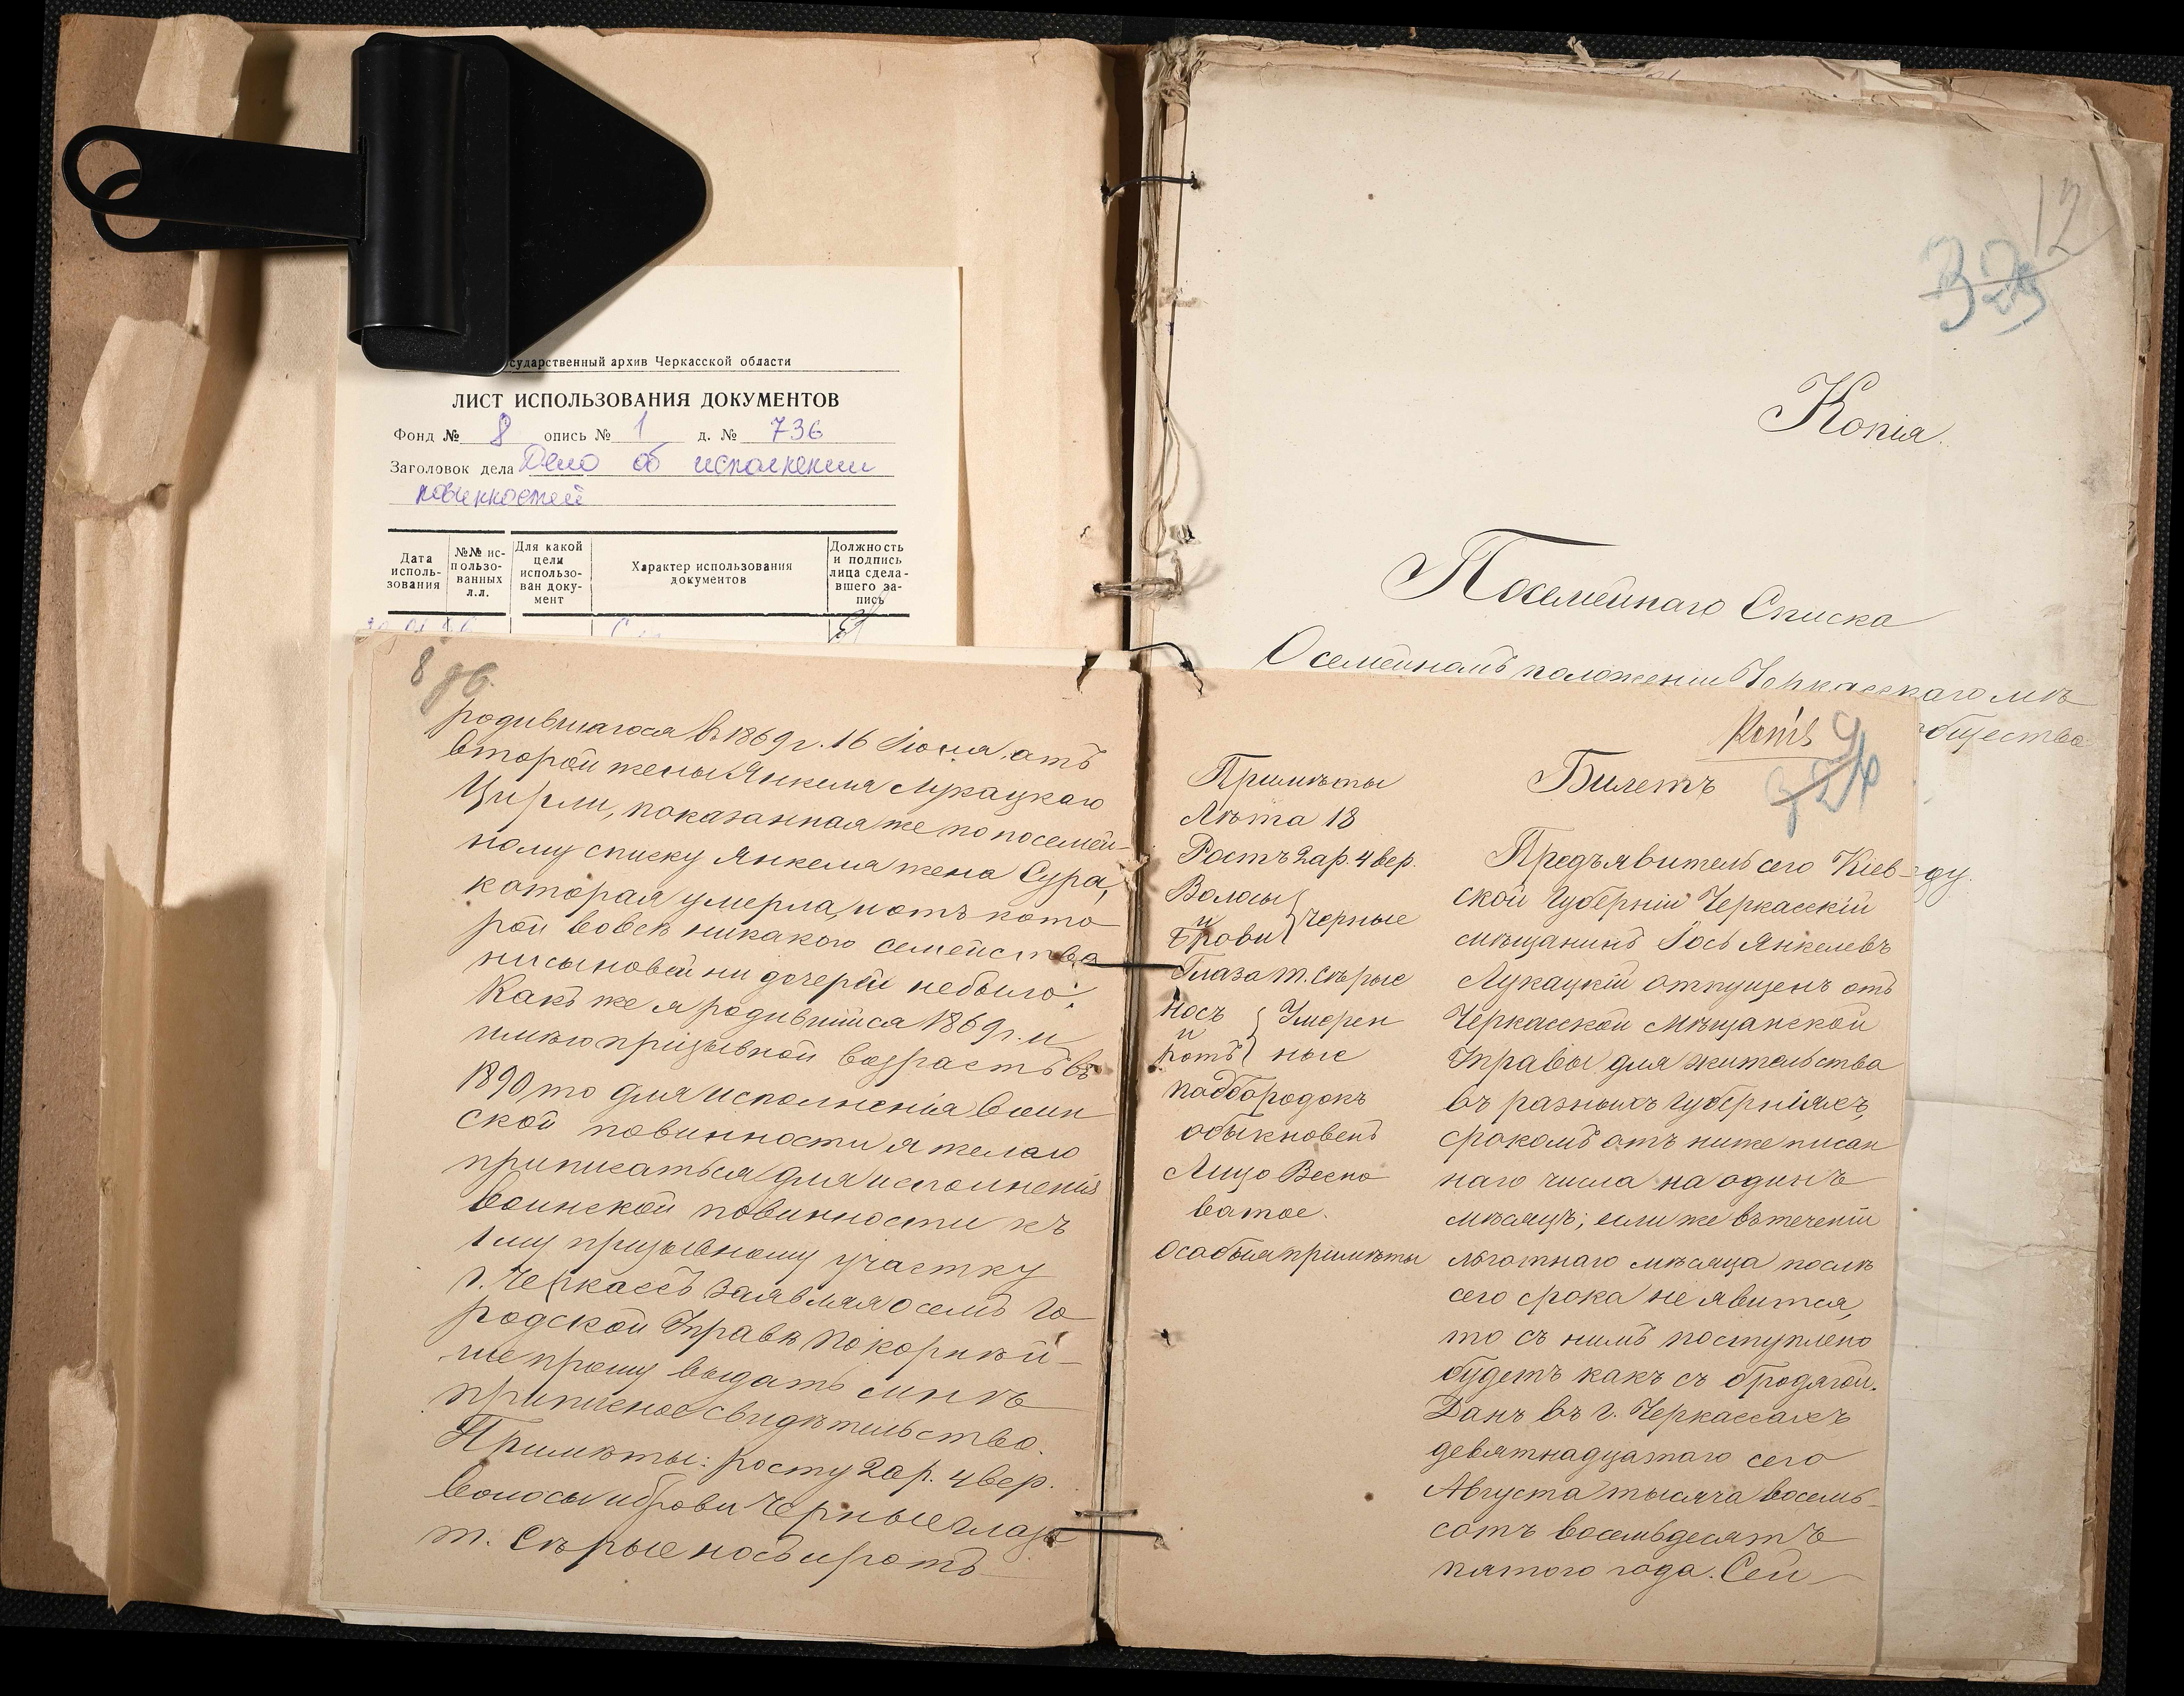 сударственный архив Черкасской области
ЛИСТ ИСПОЛЬЗОВАНИЯ ДОКУМЕНТОВ
Фонд № 8 опись № 1 д. № 736
Заголовок дела Дело об исполнении
повинностей
Дата исполь- зования
№№ ис- пользо- ванных л.л.
Для какой цели использо- ван доку- мент
Характер использования документов
Должность и подпись лица сдела- вшего за- пись
8 об.
родившагося въ 1869 г. 16 Іюня, отъ
второй жены Янкеля Лукацкаго
Цирли, показанная же по посемей-
ному списку Янкеля жена Сура,
которая умерла, и отъ кото
рой вовсе никакого семейства
ни сыновей ни дочерей небыло.
Какъ же я родившійся 1869 г. и
имѣю призывной возрастъ въ
1890 то для исполненія воин
ской повинности я желаю
приписаться для исполненія
воинской повинности къ
1му призывному участку
г. Черкассъ заявляя о семъ Го
родской Управѣ покорнѣй-
ше прошу выдать мнѣ
приписное свидѣтельство.
Примѣты: росту 2 ар. 4 вер.
волосы и брови черные глаза
т. Сѣрые носъ и ротъ
12
Копія.
Посемейнаго Списка
О семейномъ положеніи Черкасскаго мѣ
общества
ду
Копія 9
Примѣты
Лѣта 18
Ростъ 2 ар. 4 вер.
Волосы
и
Брови
черные
Глаза т. Сѣрые
Носъ
и
Ротъ
Умерен
ные
Подбородокъ
обыкновенъ
Лицо Весно
ватое.
Особыя примѣты
Билетъ
Предъявитель сего Кіев-
ской Губерніи Черкасскій
мѣщанинъ Іось Янкелевъ
Лукацкій отпущенъ отъ
Черкасской Мѣщанской
Управы для жительства
въ разныхъ губерніяхъ,
срокомъ отъ ниже писан
наго числа на одинъ
мѣсяцъ; если же въ теченіи
льготнаго мѣсяца послѣ
сего срока не явится,
то съ нимъ поступлено
будетъ какъ съ бродягой.
Данъ въ г. Черкассахъ
девятнадцатаго сего
Августа тысяча восемь-
сотъ восемьдесятъ
пятого года. Сей